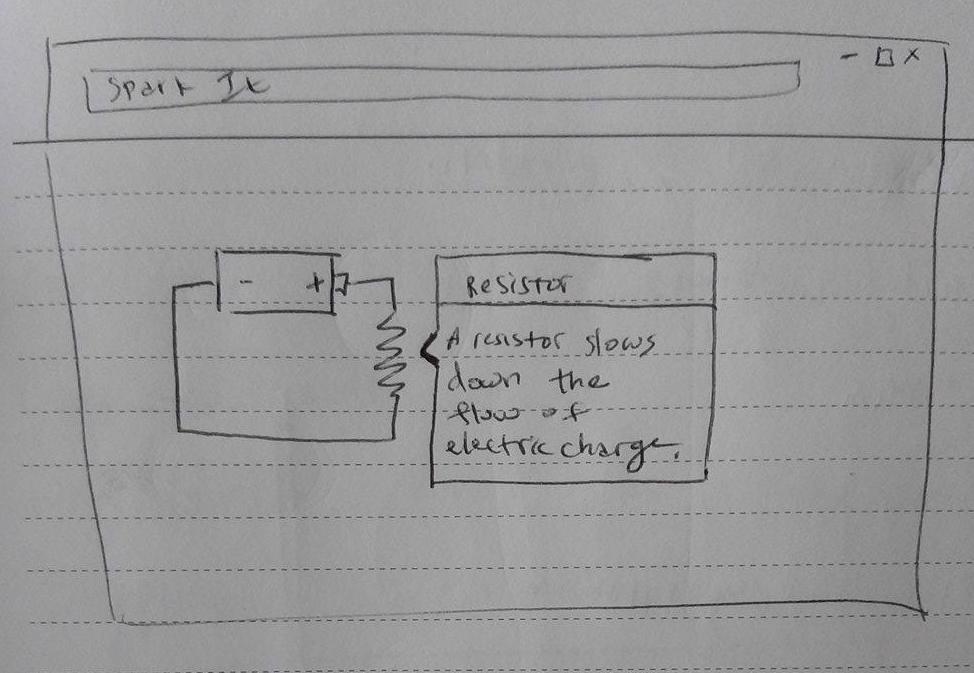 Spark It
- +
Resistor
A resistor slows
down the
flow of
electric charge.